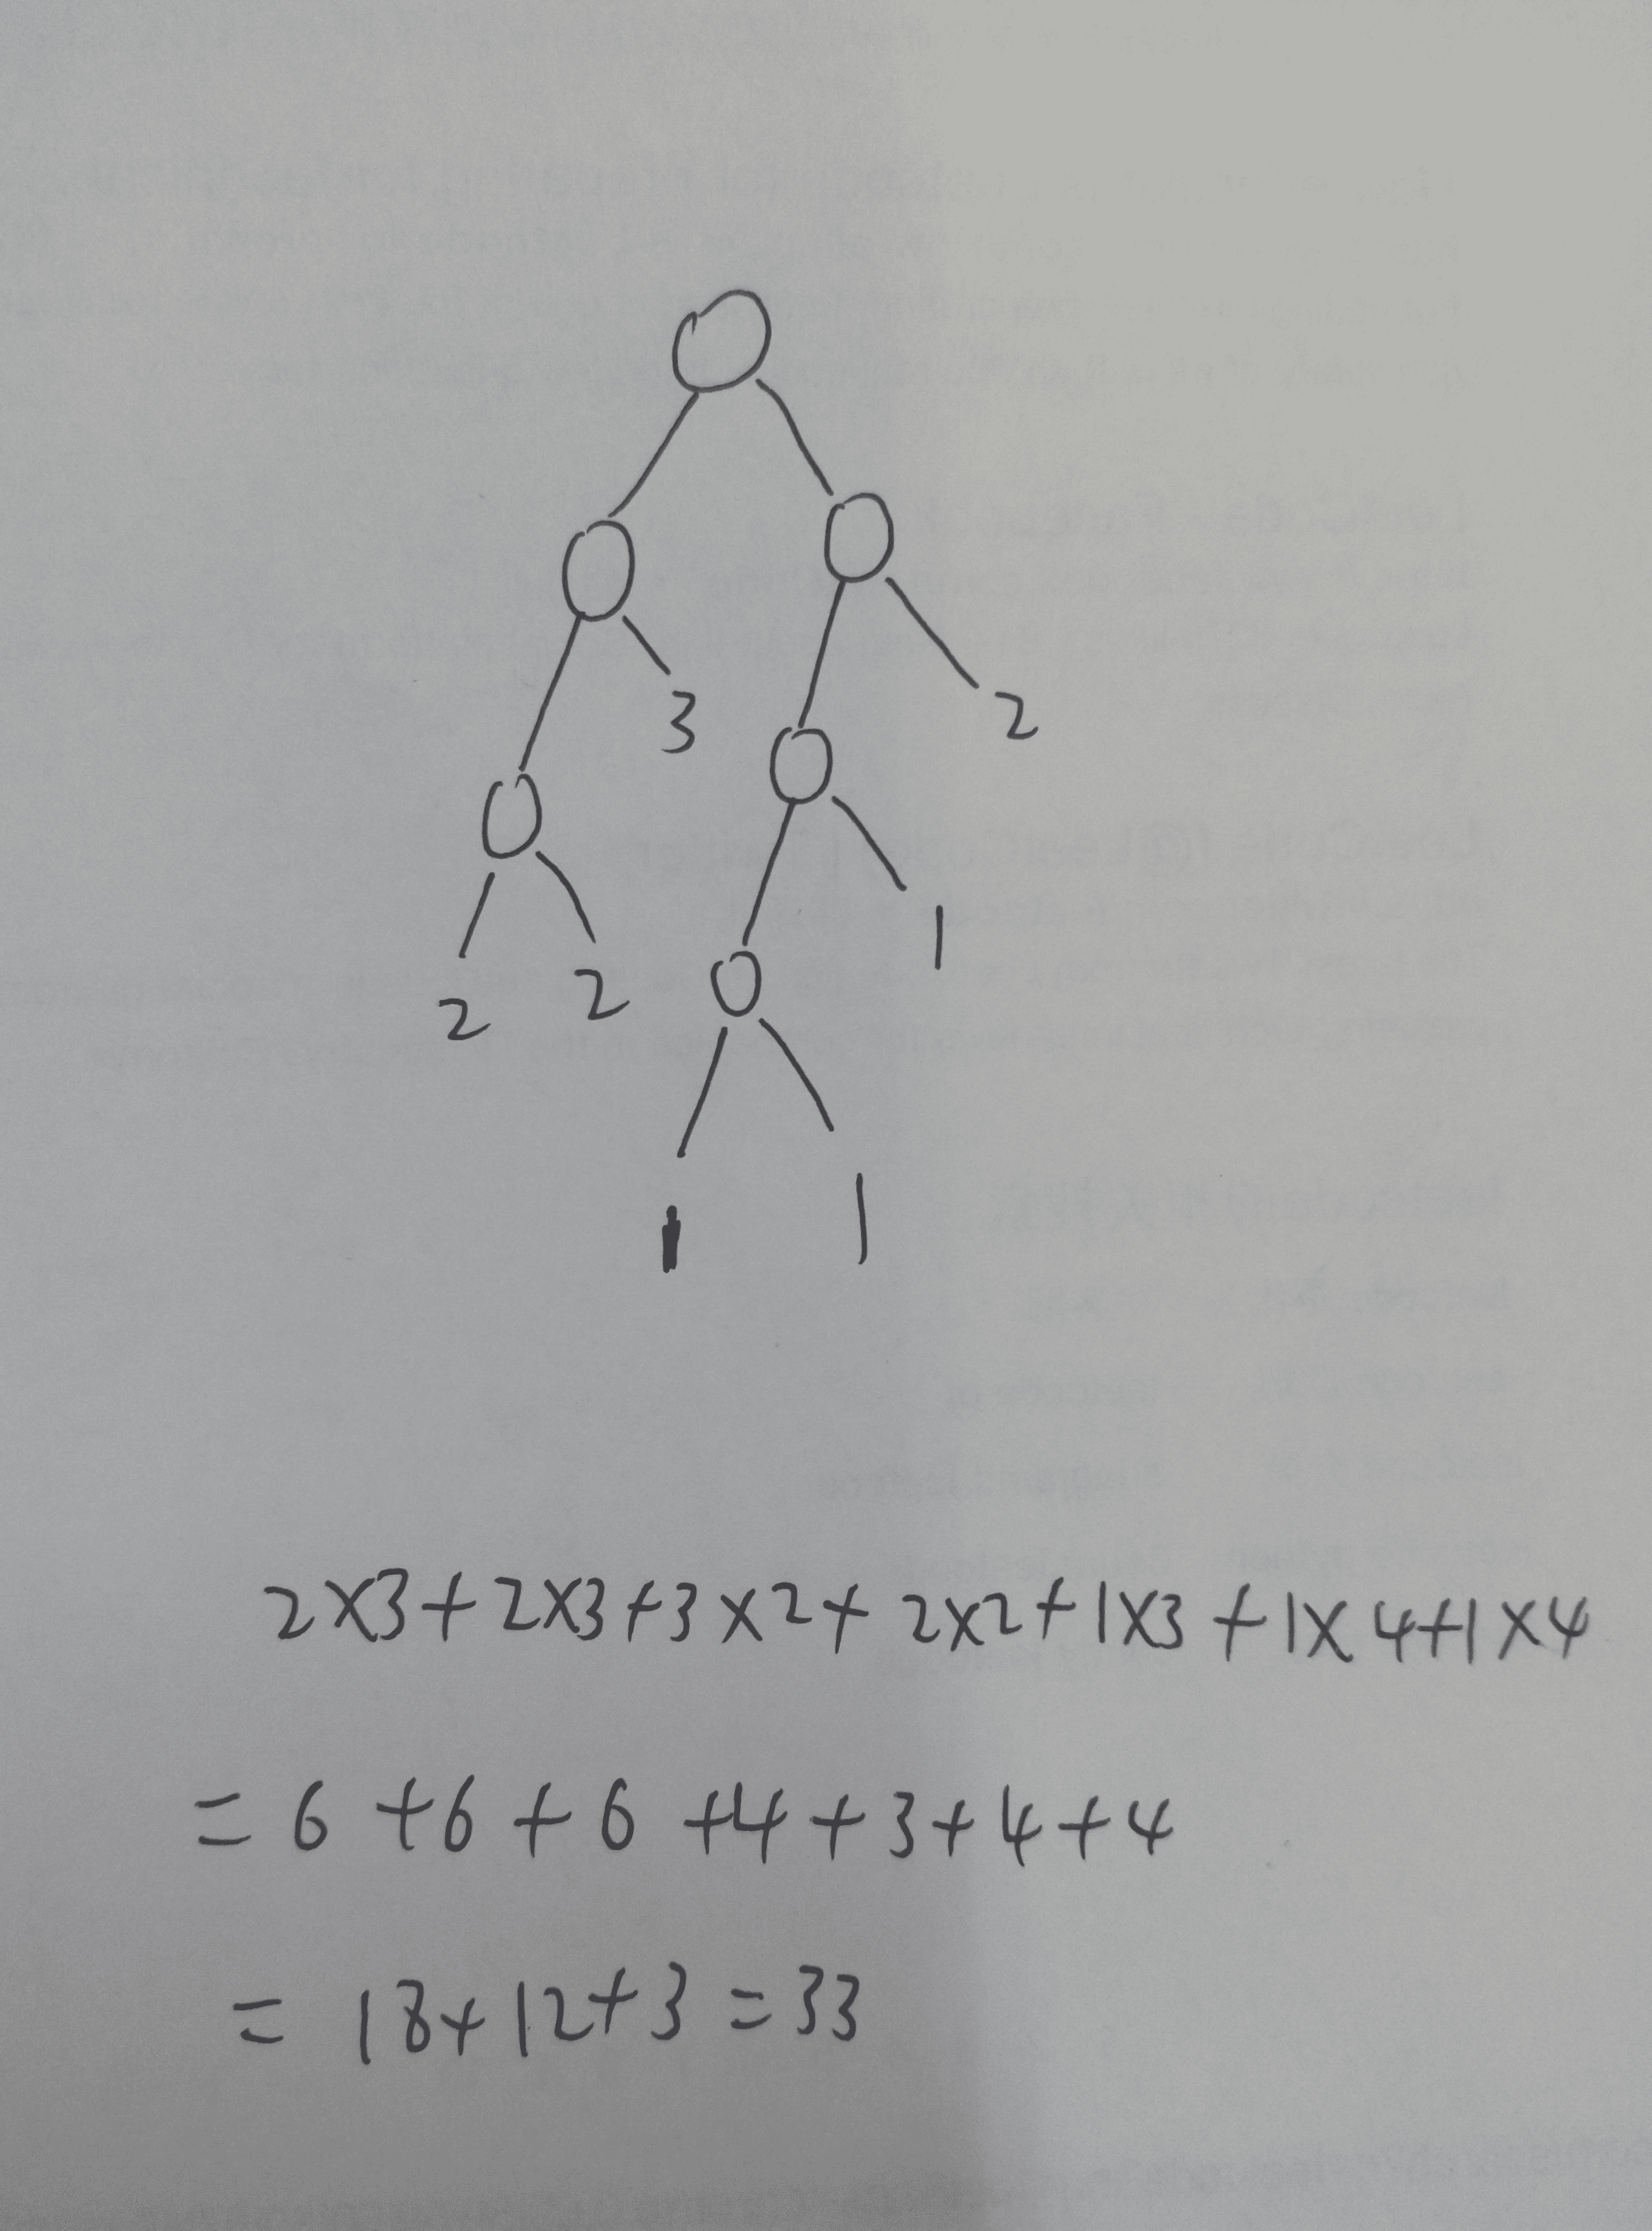 3
2
2 2
1
1 1
2×3+2×3+3×2+2×2+1×3+1×4+1×4
=6+6+6+4+3+4+4
=18+12+3=33